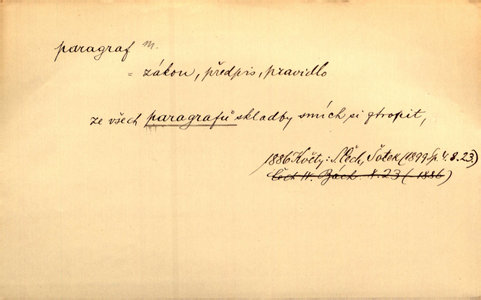 paragraf m.
= zákon, předpis, pravidlo
ze všech paragrafů skladby smích si ztropit,
1886 Květy: S. Čech, Šotek (1899 Sp. 4. 8. 23)
Čech N. Bách. 8. 23 (1886)